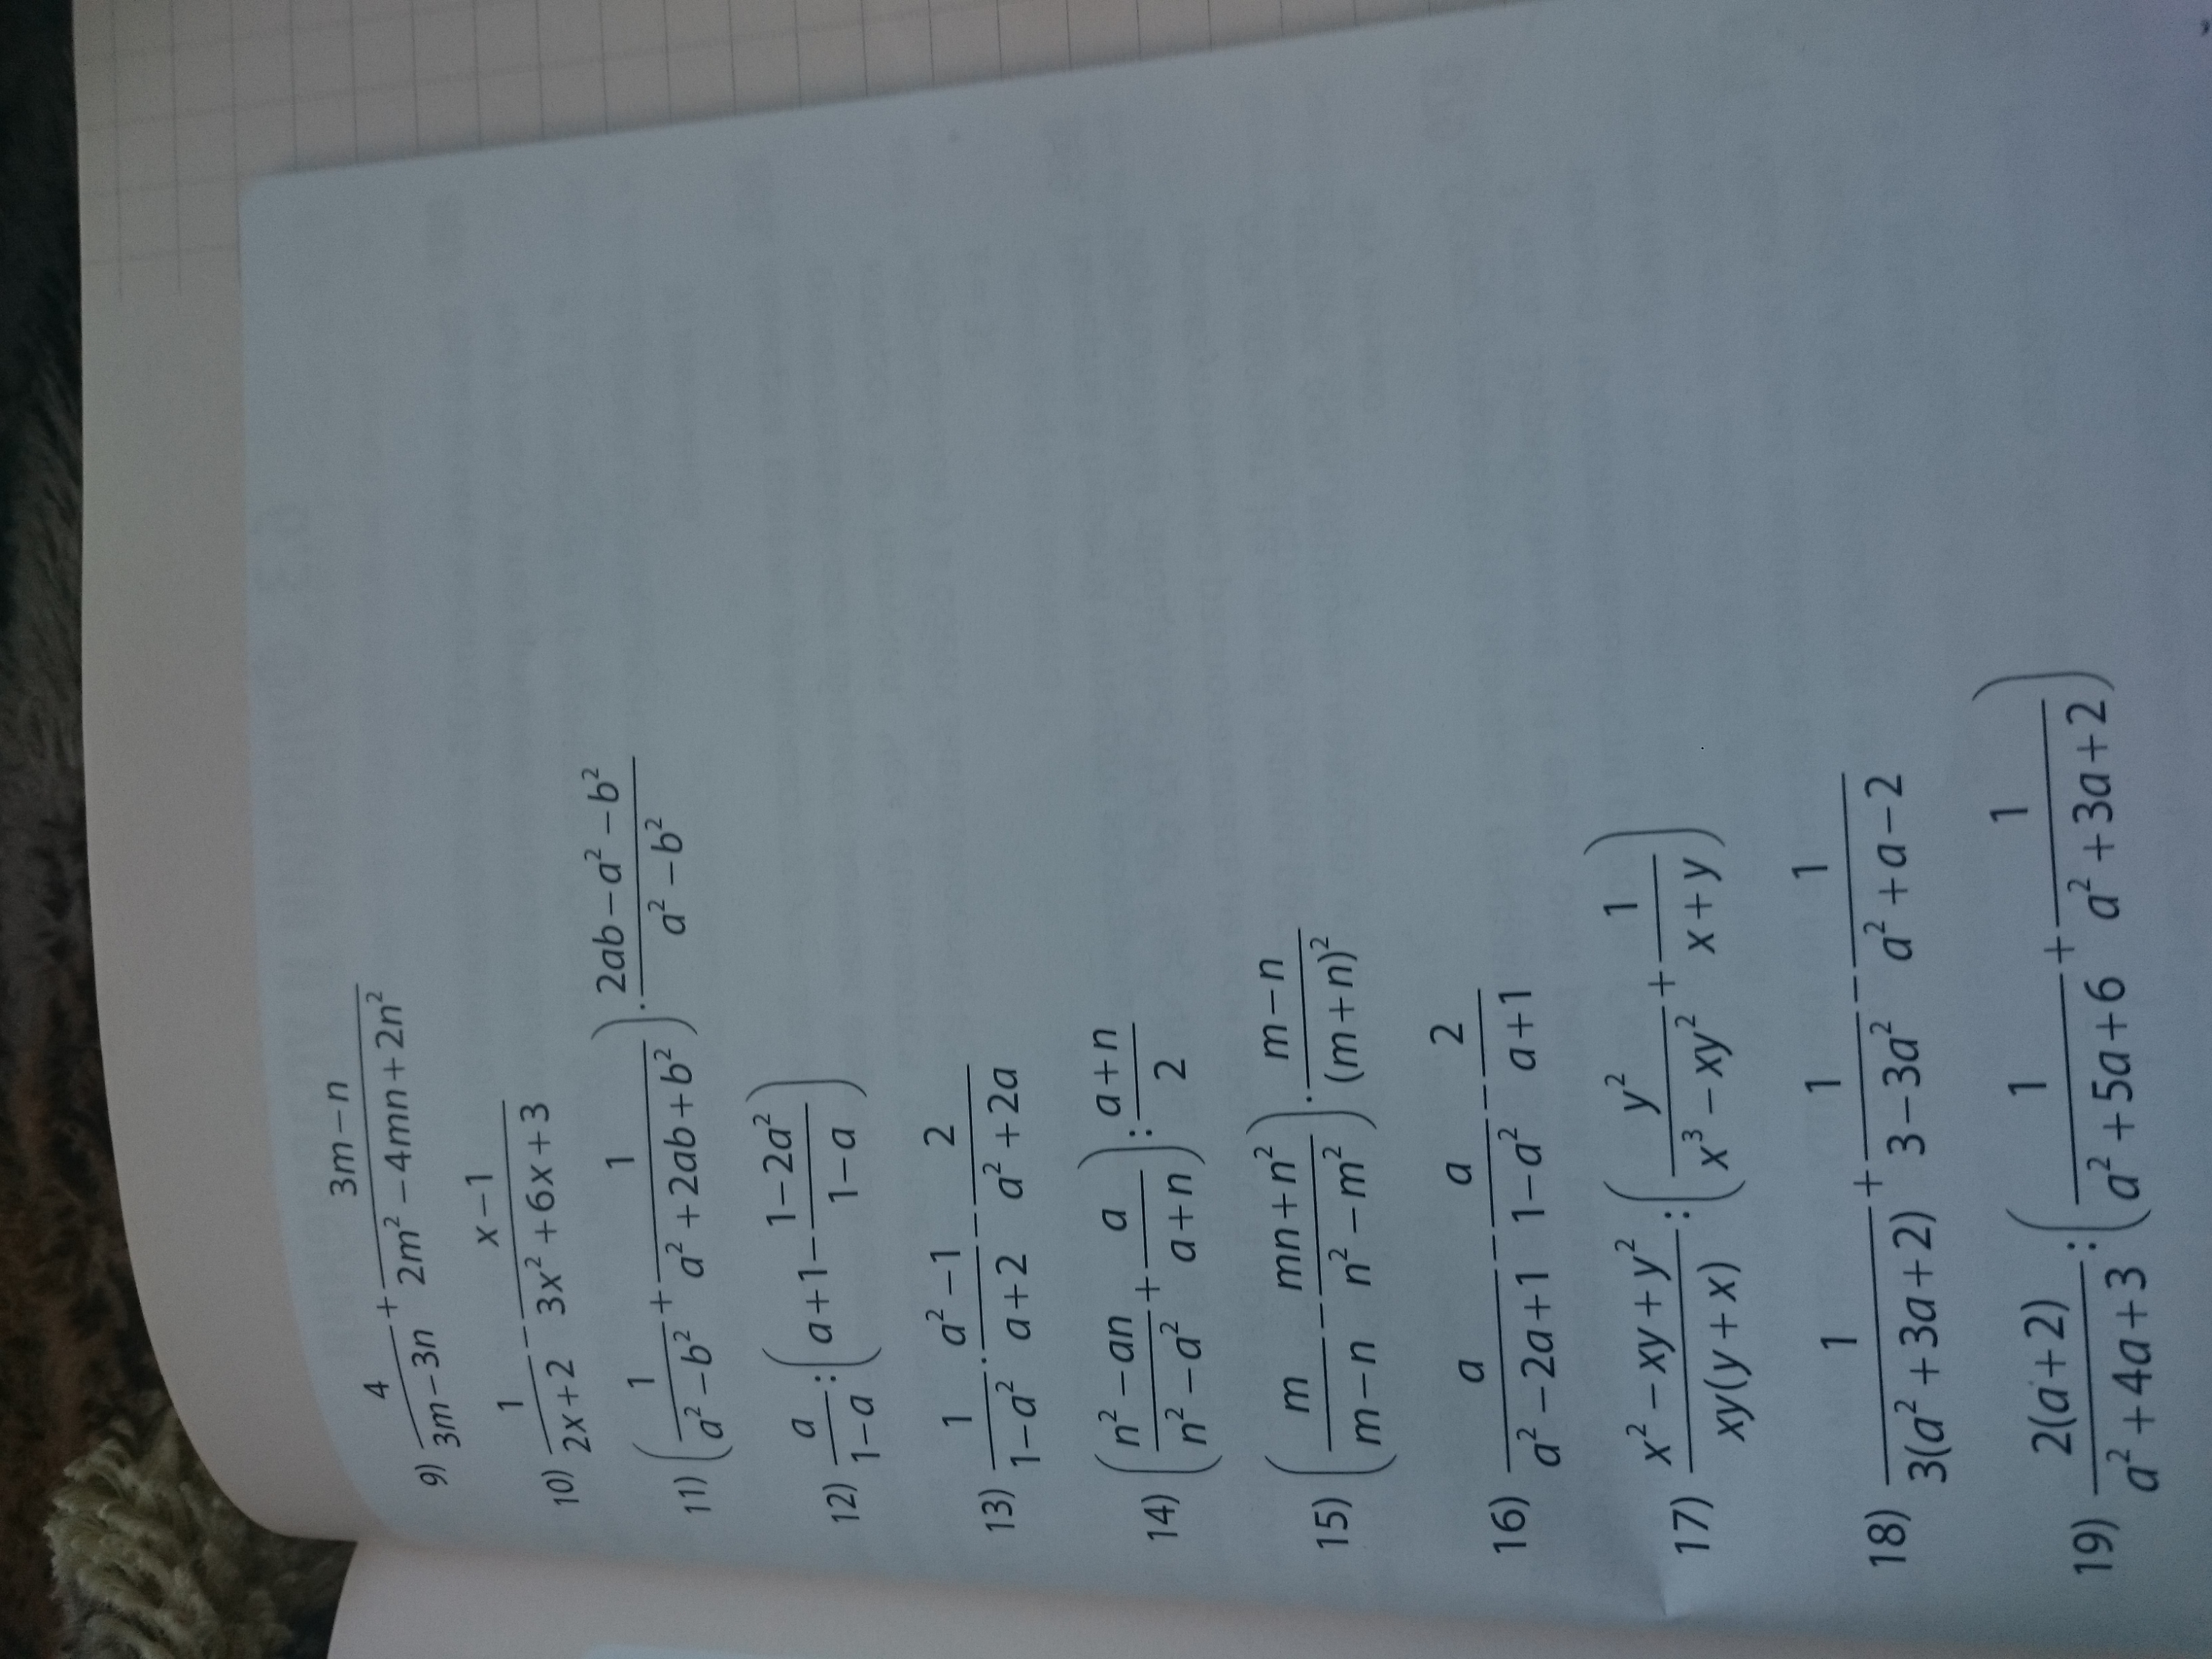 9) \frac{4}{3m-3n}+\frac{3m-n}{2m^2-4mn+2n^2}
10) \frac{1}{2x+2}-\frac{x-1}{3x^2+6x+3}
11) \left(\frac{1}{a^2-b^2}+\frac{1}{a^2+2ab+b^2}\right)\cdot\frac{2ab-a^2-b^2}{a^2-b^2}
12) \frac{a}{1-a}:\left(a+1-\frac{1-2a^2}{1-a}\right)
13) \frac{1}{1-a^2}\cdot\frac{a^2-1}{a+2}-\frac{2}{a^2+2a}
14) \left(\frac{n^2-an}{n^2-a^2}+\frac{a}{a+n}\right):\frac{a+n}{2}
15) \left(\frac{m}{m-n}-\frac{mn+n^2}{n^2-m^2}\right)\cdot\frac{m-n}{(m+n)^2}
16) \frac{a}{a^2-2a+1}-\frac{a}{1-a^2}-\frac{2}{a+1}
17) \frac{x^2-xy+y^2}{xy(y+x)}:\left(\frac{y^2}{x^3-xy^2}+\frac{1}{x+y}\right)
18) \frac{1}{3(a^2+3a+2)}+\frac{1}{3-3a^2}-\frac{1}{a^2+a-2}
19) \frac{2(a+2)}{a^2+4a+3}:\left(\frac{1}{a^2+5a+6}+\frac{1}{a^2+3a+2}\right)